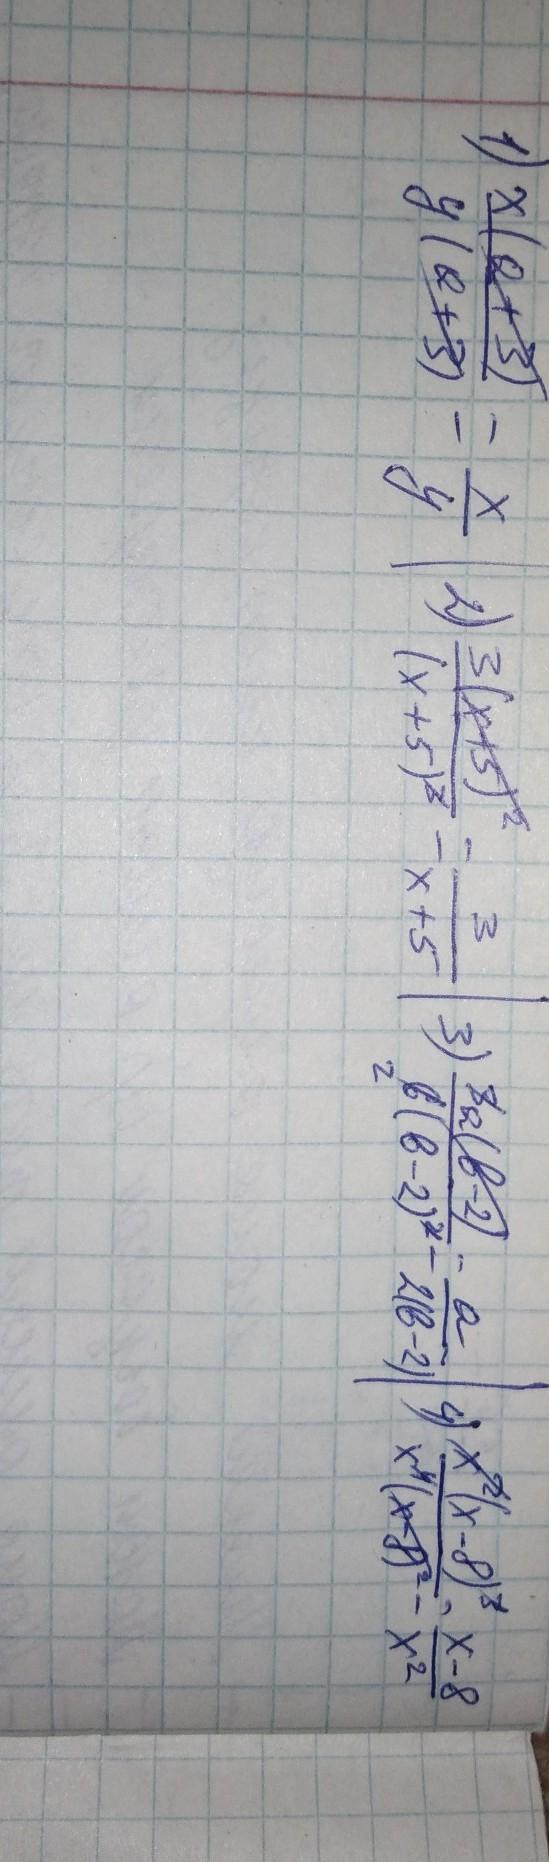 1) x(a+3) / y(a+3) = x / y | 2) 3(x+5)² / (x+5)³ = 3 / x+5 | 3) 3a(b-2) / 6(b-2)² = a / 2(b-2) | 4) x²(x-8)³ / x⁴(x-8)² = x-8 / x²
2